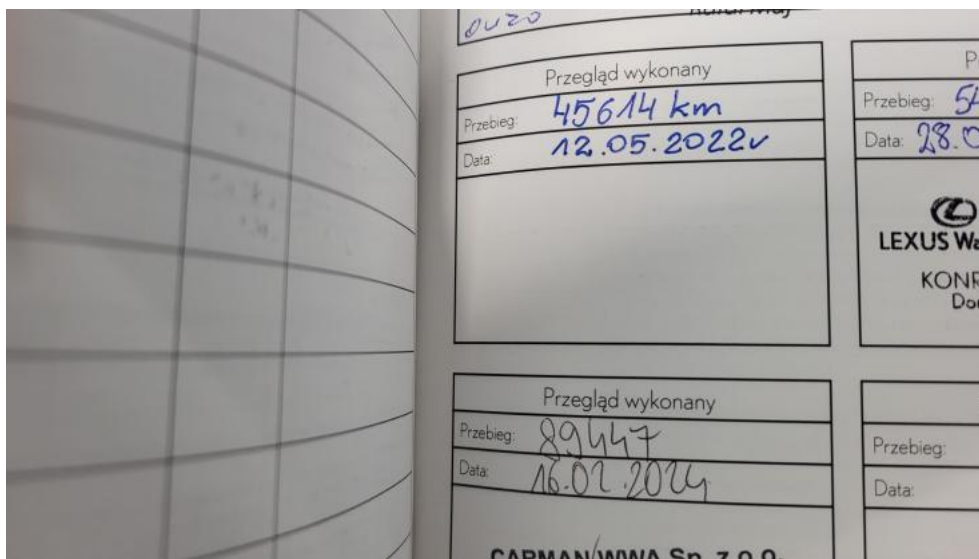 duzo
Przegląd wykonany
Przebieg: 45614 km
Data: 12.05.2022r
P
Przebieg: 54
Data: 28.0
LEXUS Wa
KONR
Dor
Przegląd wykonany
Przebieg: 89447
Data: 16.02.2024
CARMAN WWA Sp. z o.o.
Przebieg:
Data: